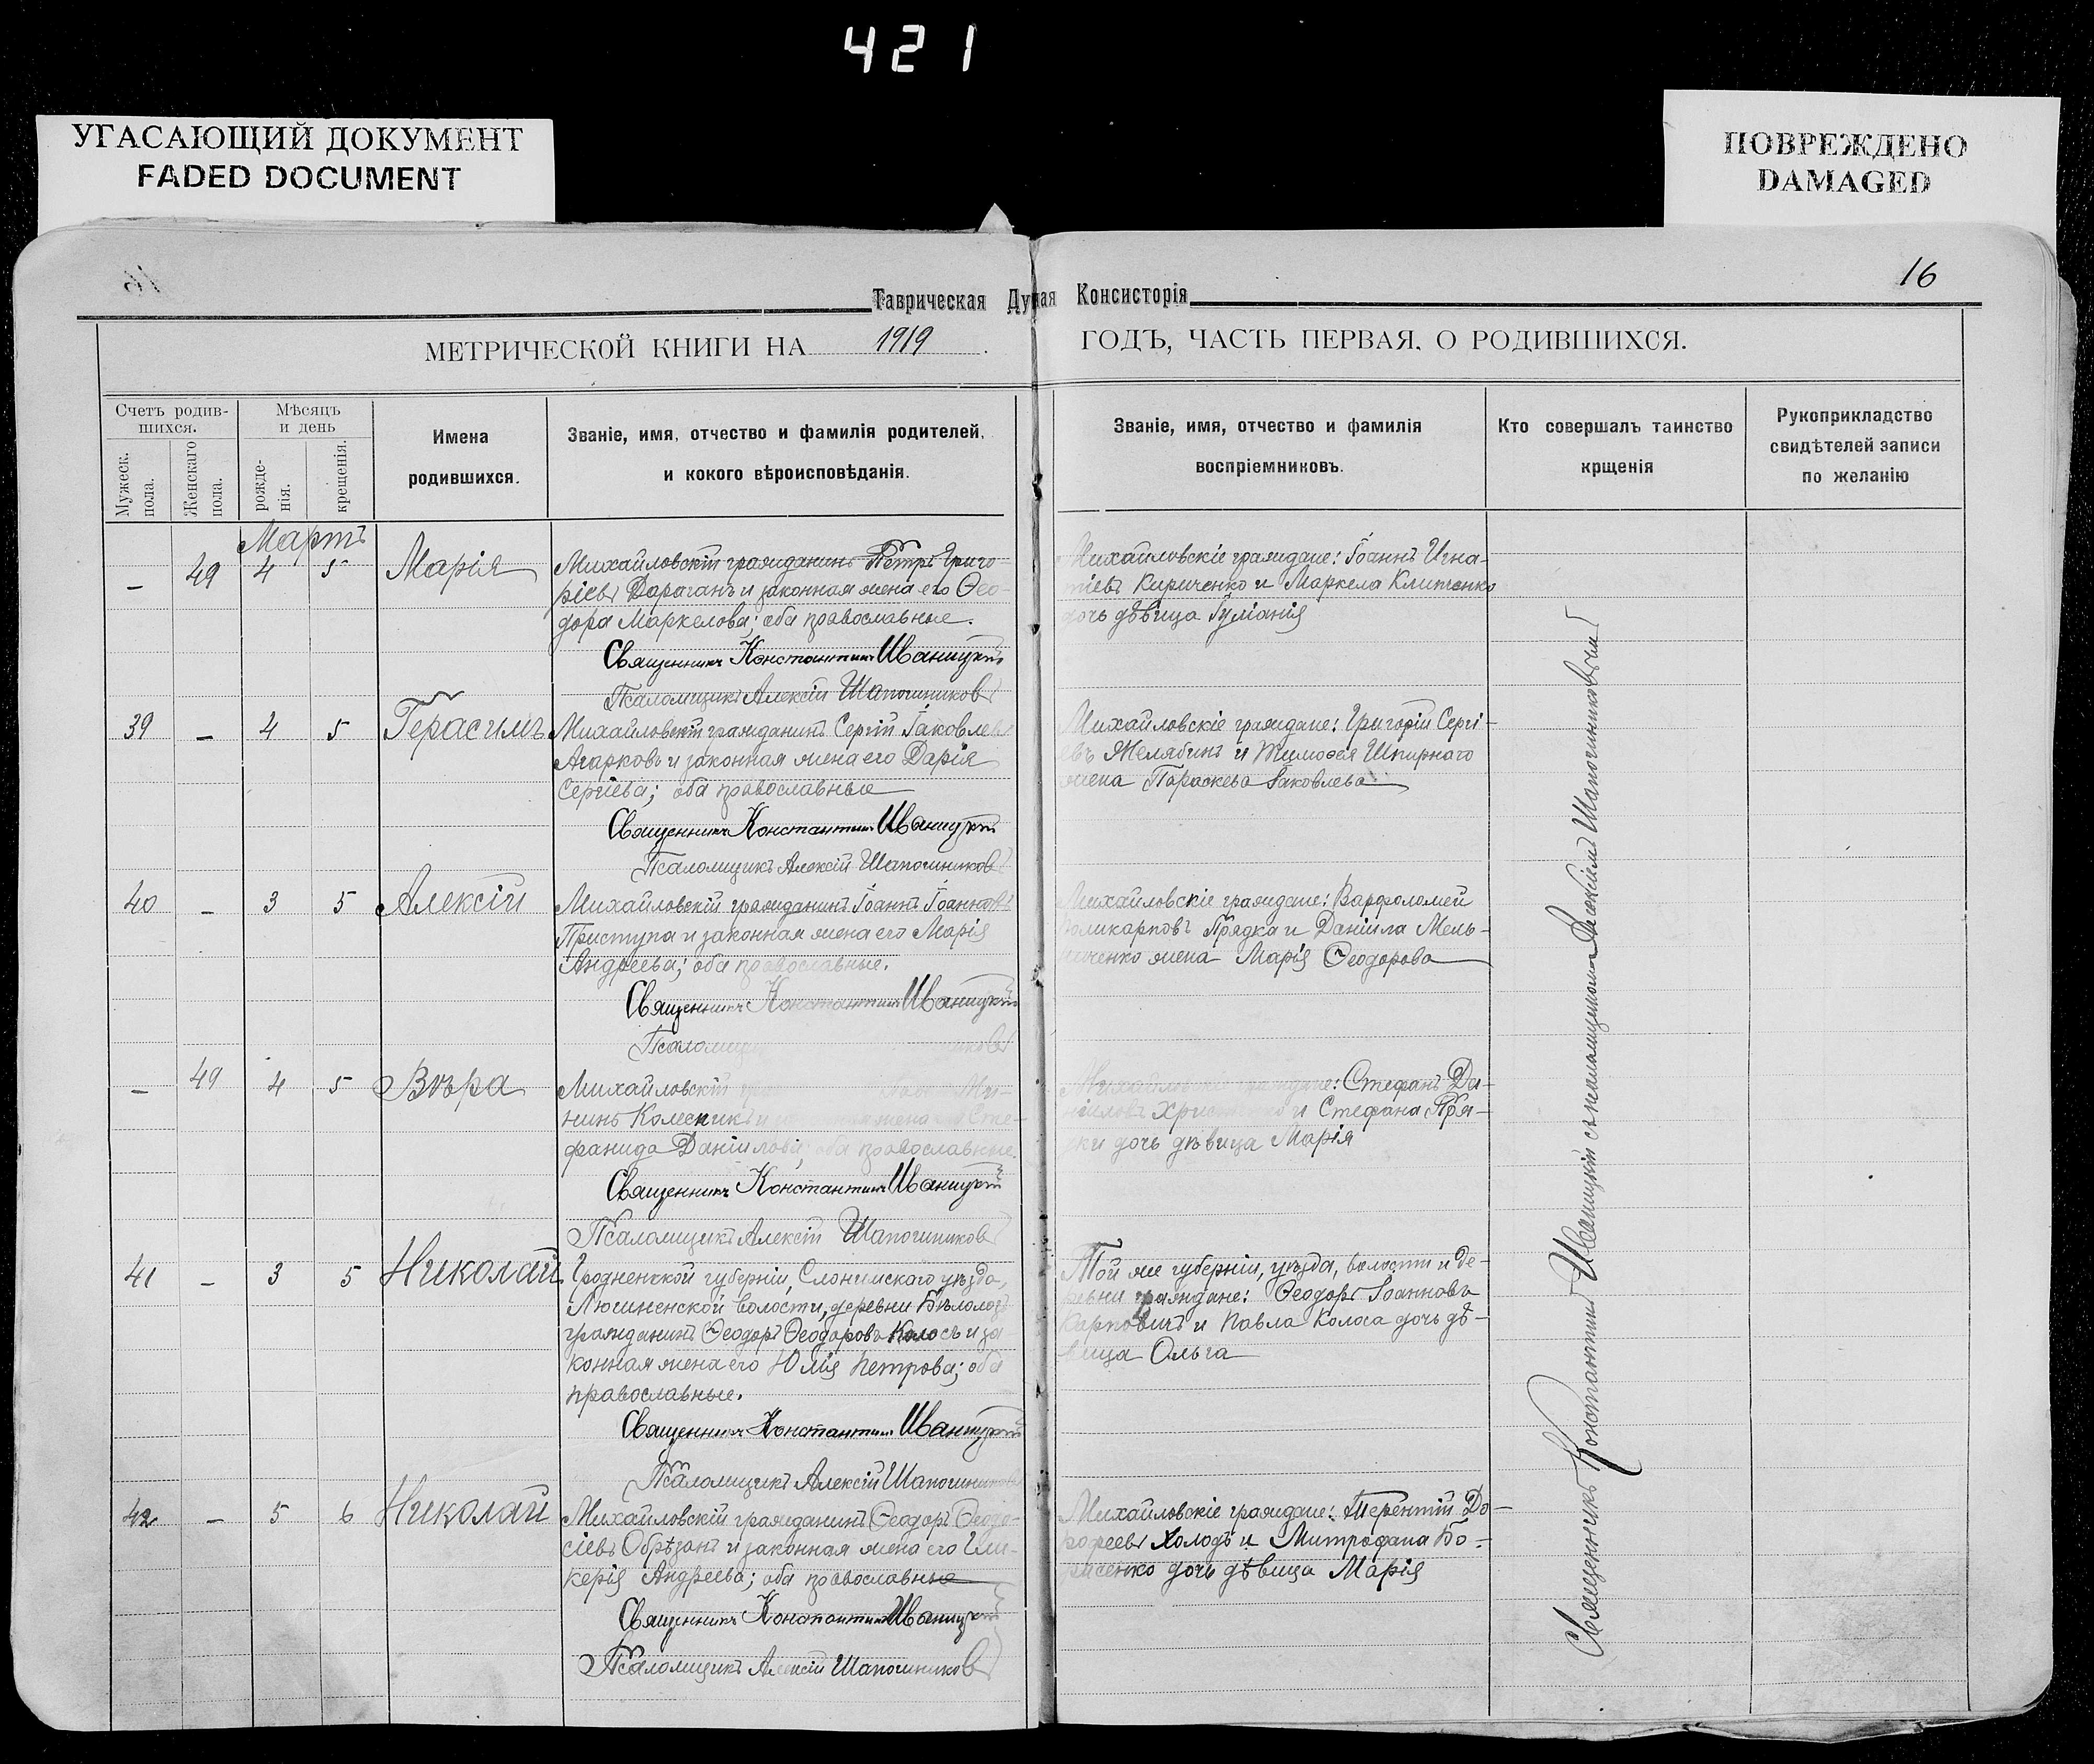 421
УГАСАЮЩИЙ ДОКУМЕНТ
FADED DOCUMENT
ПОВРЕЖДЕНО
DAMAGED
16
Таврическая Ду ная Консисторія
МЕТРИЧЕСКОЙ КНИГИ НА 1919 ГОДЪ, ЧАСТЬ ПЕРВАЯ, О РОДИВШИХСЯ.
Счетъ родив-
шихся.
Мужеск.
пола.
Женскаго
пола.
Мѣсяцъ
и день
рожде-
нія.
крещенія.
Имена
родившихся.
Званіе, имя, отчество и фамилія родителей,
и кокого вѣроисповѣданія.
Званіе, имя, отчество и фамилія
воспріемниковъ.
Кто совершалъ таинство
крщенія
Рукоприкладство
свидѣтелей записи
по желанію
Мартъ
– 49 4 5 Марія
Михайловскій гражданинъ Петръ Григо-
ріевъ Дараганъ и законная жена его Ѳео-
дора Маркелова; оба православные.
Священникъ Константинъ Иваницкій
Псаломщикъ Алексій Шапошниковъ
Михайловскіе граждане: Іоаннъ Игна-
тіевъ Кириченко и Маркела Клименко
дочь дѣвица Іуліанія
39 – 4 5 Герасимъ
Михайловскій гражданинъ Сергій Іаковлевъ
Агарковъ и законная жена его Дарія
Сергіева; оба православные
Священникъ Константинъ Иваницкій
Псаломщикъ Алексій Шапошниковъ
Михайловскіе граждане: Григорій Сергі-
евъ Желябинъ и Тимоѳея Шпирного
жена Параскева Іаковлева
40 – 3 5 Алексій
Михайловскій гражданинъ Іоаннъ Іоанновъ
Приступа и законная жена его Марія
Андреева; оба православные.
Священникъ Константинъ Иваницкій
Псаломщ
Михайловскіе граждане: Варфоломей
Поликарповъ Прядка и Даніила Мель-
ниченко жена Марія Ѳеодорова
– 49 4 5 Вѣра
Михайловскій Ми-
нинъ Колесникъ и жена Сте-
фанида Даніилова; оба православные.
Священникъ Константинъ Иваницкій
Псаломщикъ Алексій Шапошниковъ
Михайловскіе граждане: Стефанъ Да-
ніиловъ и Стефана Пря-
дки дочь дѣвица Марія
41 – 3 5 Николай
Гродненской губерніи, Слонимскаго уѣзда,
волости, деревни
гражданинъ Ѳеодоръ Ѳеодоровъ Колосъ и за
конная жена его Юлія Петрова; оба
православные.
Священникъ Константинъ Иваницкій
Псаломщикъ Алексій Шапошниковъ
Той же губерніи, уѣзда, волости и де-
ревни граждане: Ѳеодоръ Іоанновъ
Карповичъ и Павла Колоса дочь дѣ-
вица Ольга
42 – 5 6 Николай
Михайловскій гражданинъ Ѳеодоръ Ѳеодо-
сіевъ Обрѣзанъ и законная жена его Гли-
керія Андреева; оба православные
Священникъ Константинъ Иваницкій
Псаломщикъ Алексій Шапошниковъ
Михайловскіе граждане: Терентій До-
роѳеевъ Холодъ и Митрофана Бо-
рисенко дочь дѣвица Марія
Священникъ Константинъ Иваницкій съ псаломщикомъ Алексіемъ Шапошниковымъ